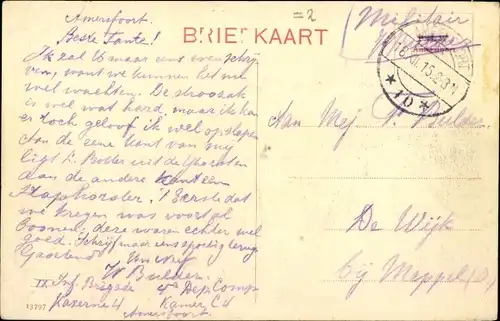 =2
Amersfoort.
Beste Tante!
Ik zal U maar eens even schrij
ven, want we kunnen het nu
wel wachten. De stroozak
is wel wat hard, maar ik kan
er toch geloof ik wel op slapen
Aan de eene kant van my
ligt R. Bodder uit de
aan de andere kant een
Staphorster. 't Eerste dat
we kregen was voort
boonen, deze waren echter wel
goed. Schrijf maar eens spoedig terug
Gegroet Uw Neef
W Bulder.
IX Inf. Brigade 4e Dep. Comp
Kazerne 4 Kamer C4
Amersfoort.
13797
BRIEFKAART
Militair
Aan Mej. P. Bulder
De Wijk
bij Meppel (D.)